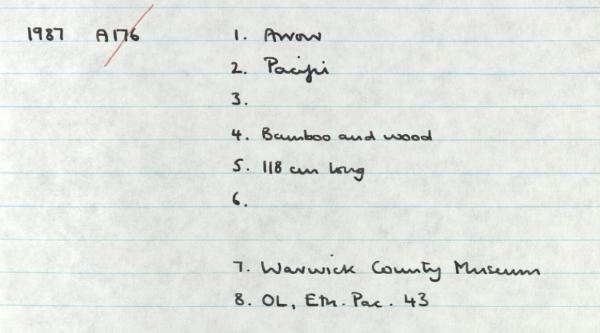 1987 A176 1. Arrow
2. Pacific
3.
4. Bamboo and wood
5. 118 cm long
6.
7. Warwick County Museum
8. OL, Eth. Pac. 43